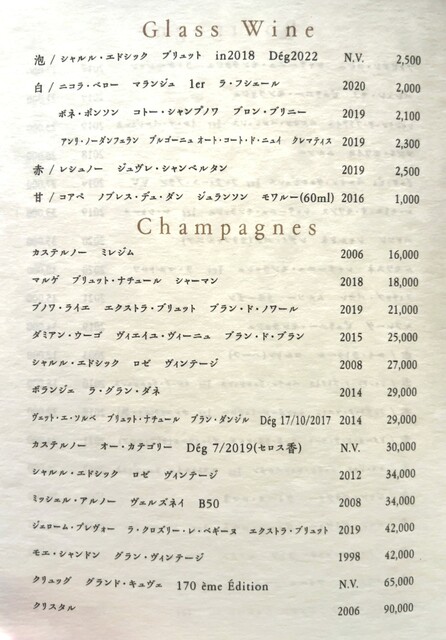 Glass Wine
泡 / シャルル・エドシック ブリュット in2018 Dég2022 N.V. 2,500
白 / ニコラ・ペロー マランジュ 1er ラ・フシェール 2020 2,000
ボネ・ポンソン コトー・シャンプノワ ブロン・ブリニー 2019 2,100
アンリ・ノーダンフェラン ブルゴーニュ オート・コート・ド・ニュイ クレマティス 2019 2,300
赤 / レシュノー ジュヴレ・シャンベルタン 2019 2,500
甘 / コアペ ノブレス・デュ・タン ジュランソン モワルー(60ml) 2016 1,000
Champagnes
カステルノー ミレジム 2006 16,000
マルゲ ブリュット・ナチュール シャーマン 2018 18,000
ブノワ・ライエ エクストラ・ブリュット ブラン・ド・ノワール 2019 21,000
ダミアン・ウーゴ ヴィエイユ・ヴィーニュ ブラン・ド・ブラン 2015 25,000
シャルル・エドシック ロゼ ヴィンテージ 2008 27,000
ボランジェ ラ・グラン・ダネ 2014 29,000
ヴェット・エ・ソルベ ブリュット・ナチュール ブラン・ダンジル Dég 17/10/2017 2014 29,000
カステルノー オー・カテゴリー Dég 7/2019(セロス香) N.V. 30,000
シャルル・エドシック ロゼ ヴィンテージ 2012 34,000
ミッシェル・アルノー ヴェルズネイ B50 2008 34,000
ジェローム・プレヴォー ラ・クロズリー・レ・ベギーヌ エクストラ・ブリュット 2019 42,000
モエ・シャンドン グラン・ヴィンテージ 1998 42,000
クリュッグ グランド・キュヴェ 170 ème Édition N.V. 65,000
クリスタル 2006 90,000